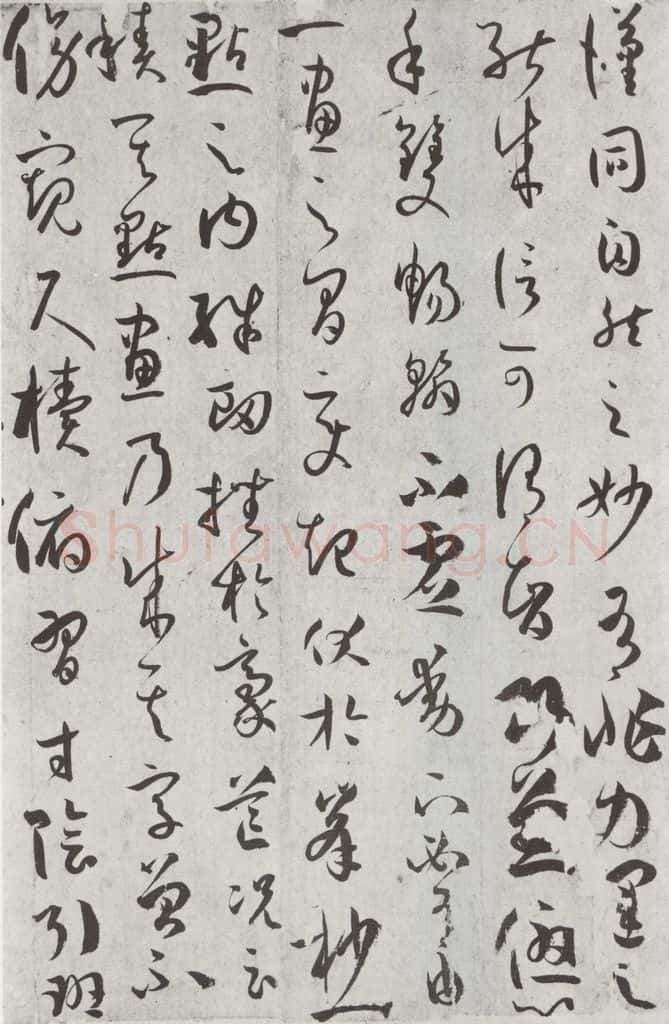 漢同自然之妙有非力運之
能成信可謂智巧兼優心
手雙暢翰不虛動下必有由
一畫之間變起伏於峯杪一
點之內殊衄挫於豪芒況云
積其點畫乃成其字曾不
傍窺尺牘俯習寸陰引班
Shufawang.CN